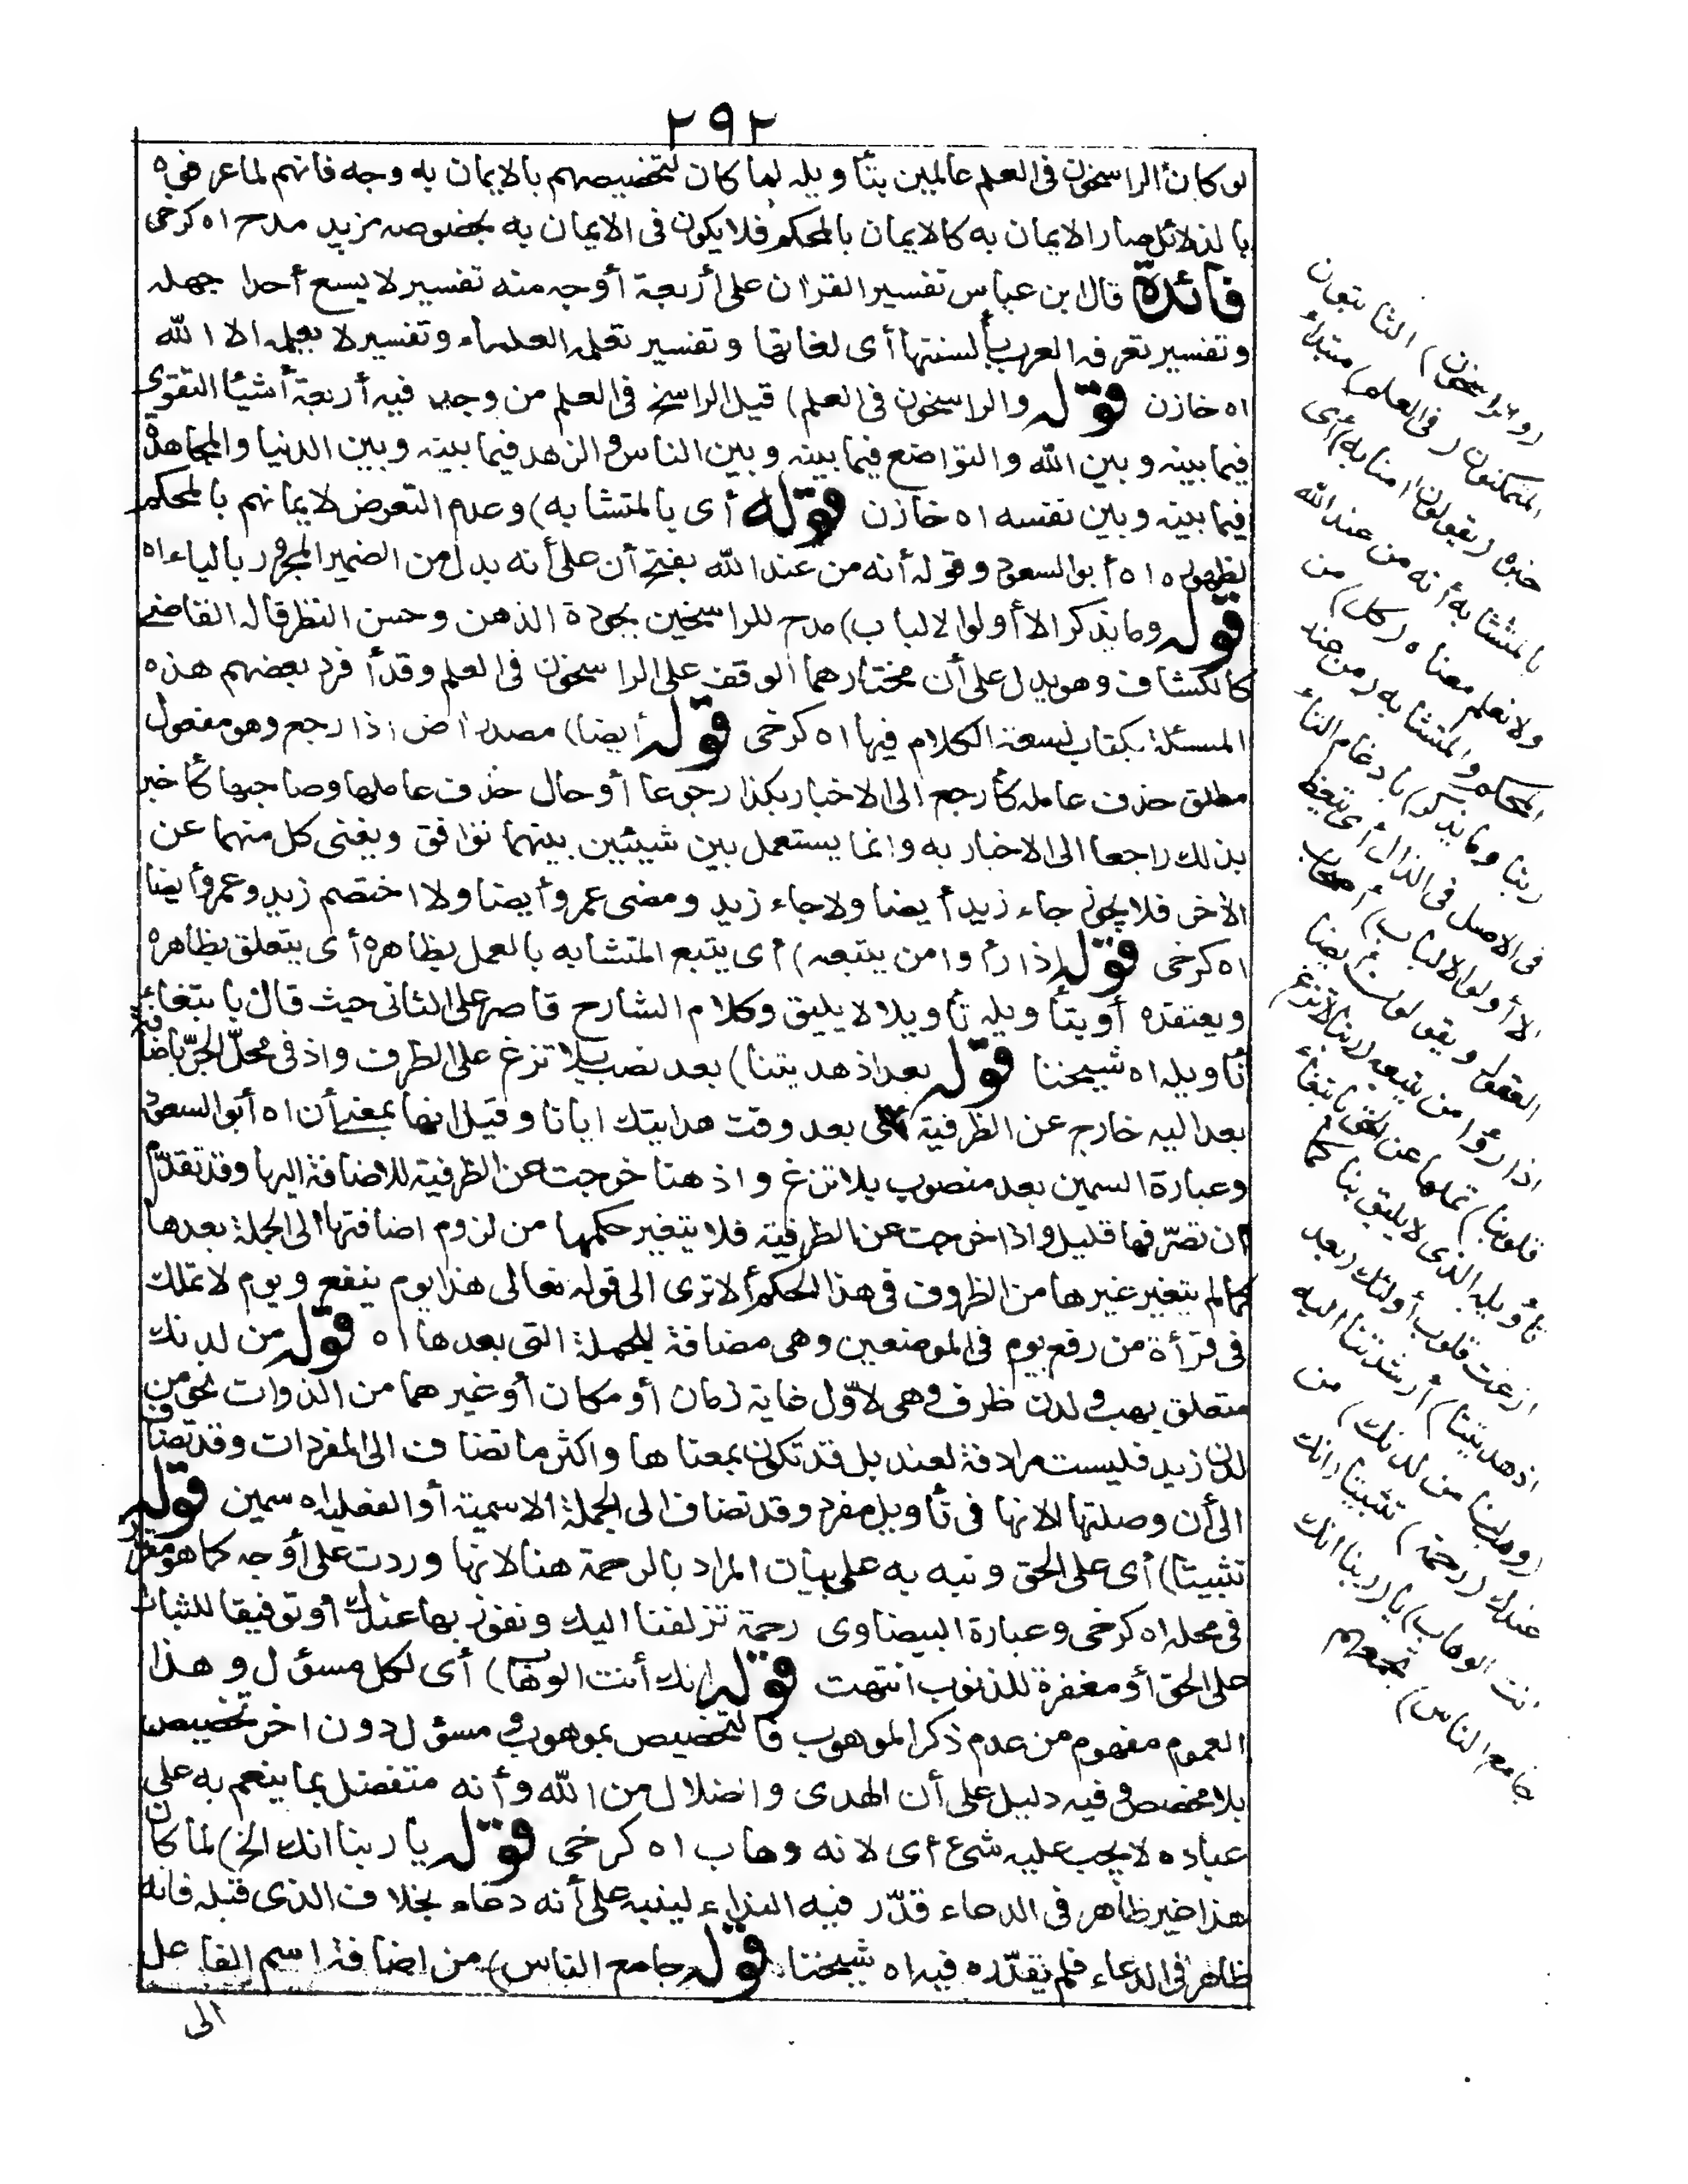 ٢٩٢
لو كان الراسخون فى العلم عالمين بتأويله لما كان لتخصيصهم بالايمان به وجه فانهم لما عرفوه
بالدلائل صار الايمان به كالايمان بالمحكم فلا يكون فى الايمان به بخصوصه مزيد مدح اه كرخى
فائدة قال ابن عباس تفسير القران على أربعة أوجه منه تفسير لا يسع أحدا جهله
وتفسير تعرفه العرب بألسنتها أى لغاتها وتفسير تعلمه العلماء وتفسير لا يعلمه الا الله
اه خازن قوله والراسخون فى العلم) قيل الراسخ فى العلم من وجد فيه أربعة أشيا التقوى
فيما بينه وبين الله والتواضع فيما بينه وبين الناس والزهد فيما بينه وبين الدنيا والمجاهدة
فيما بينه وبين نفسه اه خازن قوله أى بالمتشابه) وعدم التعرض لايمانهم بالمحكم
لظهوره اه أبو السعود وقوله أنه من عند الله بفتح أن على أنه بدل من الضمير المجرور بالباء اه
قوله وما يذكر الا أولوا الالباب) مدح للراسخين بجودة الذهن وحسن النظر قاله القاضى
كالكشاف وهو يدل على أن مختارهما الوقف على الراسخون فى العلم وقد أفرد بعضهم هذه
المسئلة بكتاب لسعة الكلام فيها اه كرخى قوله أيضا) مصدر اض اذا رجع وهو مفعول
مطلق حذف عامله كأرجع الى الاخبار بكذا رجوعا أو حال حذف عاملها وصاحبها كأخبر
بذلك راجعا الى الاخبار به وانما يستعمل بين شيئين بينهما توافق ويغنى كل منهما عن
الاخر فلا يجوز جاء زيد أيضا ولا جاء زيد ومضى عمرو أيضا ولا اختصم زيد وعمرو أيضا
اه كرخى قوله اذا رأوا من يتبعه) أى يتبع المتشابه بالعمل بظاهره أى يتعلق بظاهره
ويعتقده أو يتأويله تأويلا لا يليق وكلام الشارح قاصر على الثانى حيث قال بابتغاء
تأويله اه شيخنا قوله بعد اذ هديتنا) بعد نصب بلا تزغ على الظرف واذ فى محل الجر باضافة
بعد اليه خارج عن الظرفية أى بعد وقت هدايتك ايانا وقيل انها بمعنى أن اه أبو السعود
وعبارة السمين بعد منصوب بلا تزغ واذ هنا خرجت عن الظرفية للاضافة اليها وقد تقدم
ان تصرفها قليل واذا خرجت عن الظرفية فلا يتغير حكمها من لزوم اضافتها الى الجملة بعدها
كما لم يتغير غيرها من الظروف فى هذا الحكم ألا ترى الى قوله تعالى هذا يوم ينفع ويوم لا تملك
فى قرأة من رفع يوم فى الموضعين وهى مضافة للجملة التى بعدها اه قوله من لدنك
متعلق بهب ولدن ظرف وهى لاول غاية زمان أو مكان أو غيرهما من الذوات نحو من
لدن زيد فليست مرادفة لعند بل قد تكون بمعناها واكثر ما تضاف الى المفردات وقد تضاف
الى أن وصلتها لانها فى تأويل مفرد وقد تضاف الى الجملة الاسمية أو الفعلية اه سمين قوله
تثبيتا) أى على الحق ونبه به على بيان المراد بالرحمة هنا لانها وردت على أوجه كما هو مقرر
فى محله اه كرخى وعبارة البيضاوى رحمة تزلفنا اليك ونفوز بها عندك أو توفيقا للثبات
على الحق أو مغفرة للذنوب انتهت قوله انك أنت الوهاب) أى لكل مسؤل وهذا
العموم مفهوم من عدم ذكر الموهوب فالتخصيص بموهوب ومسؤل دون اخر تخصيص
بلا مخصص وفيه دليل على أن الهدى والضلال من الله وأنه متفضل بما ينعم به على
عباده لا يجب عليه شئ أى لانه وهاب اه كرخى قوله يا ربنا انك الخ) لما كان
هذا غير ظاهر فى الدعاء قدّر فيه النداء لينبه على أنه دعاء بخلاف الذى قبله فانه
ظاهر فى الدعاء فلم يقدّره فيه اه شيخنا قوله جامع الناس) من اضافة اسم الفاعل
الى
(والراسخون) الثابتون
المتمكنون (فى العلم) مبتدأ
خبره (يقولون امنا به) أى
بالمتشابه أنه من عند الله
ولا نعلم معناه (كل) من
المحكم والمتشابه (من عند
ربنا وما يذكر) بادغام التاء
فى الاصل فى الذال أى يتعظ
(الا أولوا الالباب) أصحاب
العقول ويقولون أيضا
اذا رأوا من يتبعه (ربنا لا تزغ
قلوبنا) تملها عن الحق بابتغاء
تأويله الذى لا يليق بنا كما
ازغت قلوب أولئك (بعد
اذ هديتنا) أرشدتنا اليه
(وهب لنا من لدنك) من
عندك (رحمة) تثبيتا (انك
أنت الوهاب) يا (ربنا انك
جامع الناس) تجمعهم